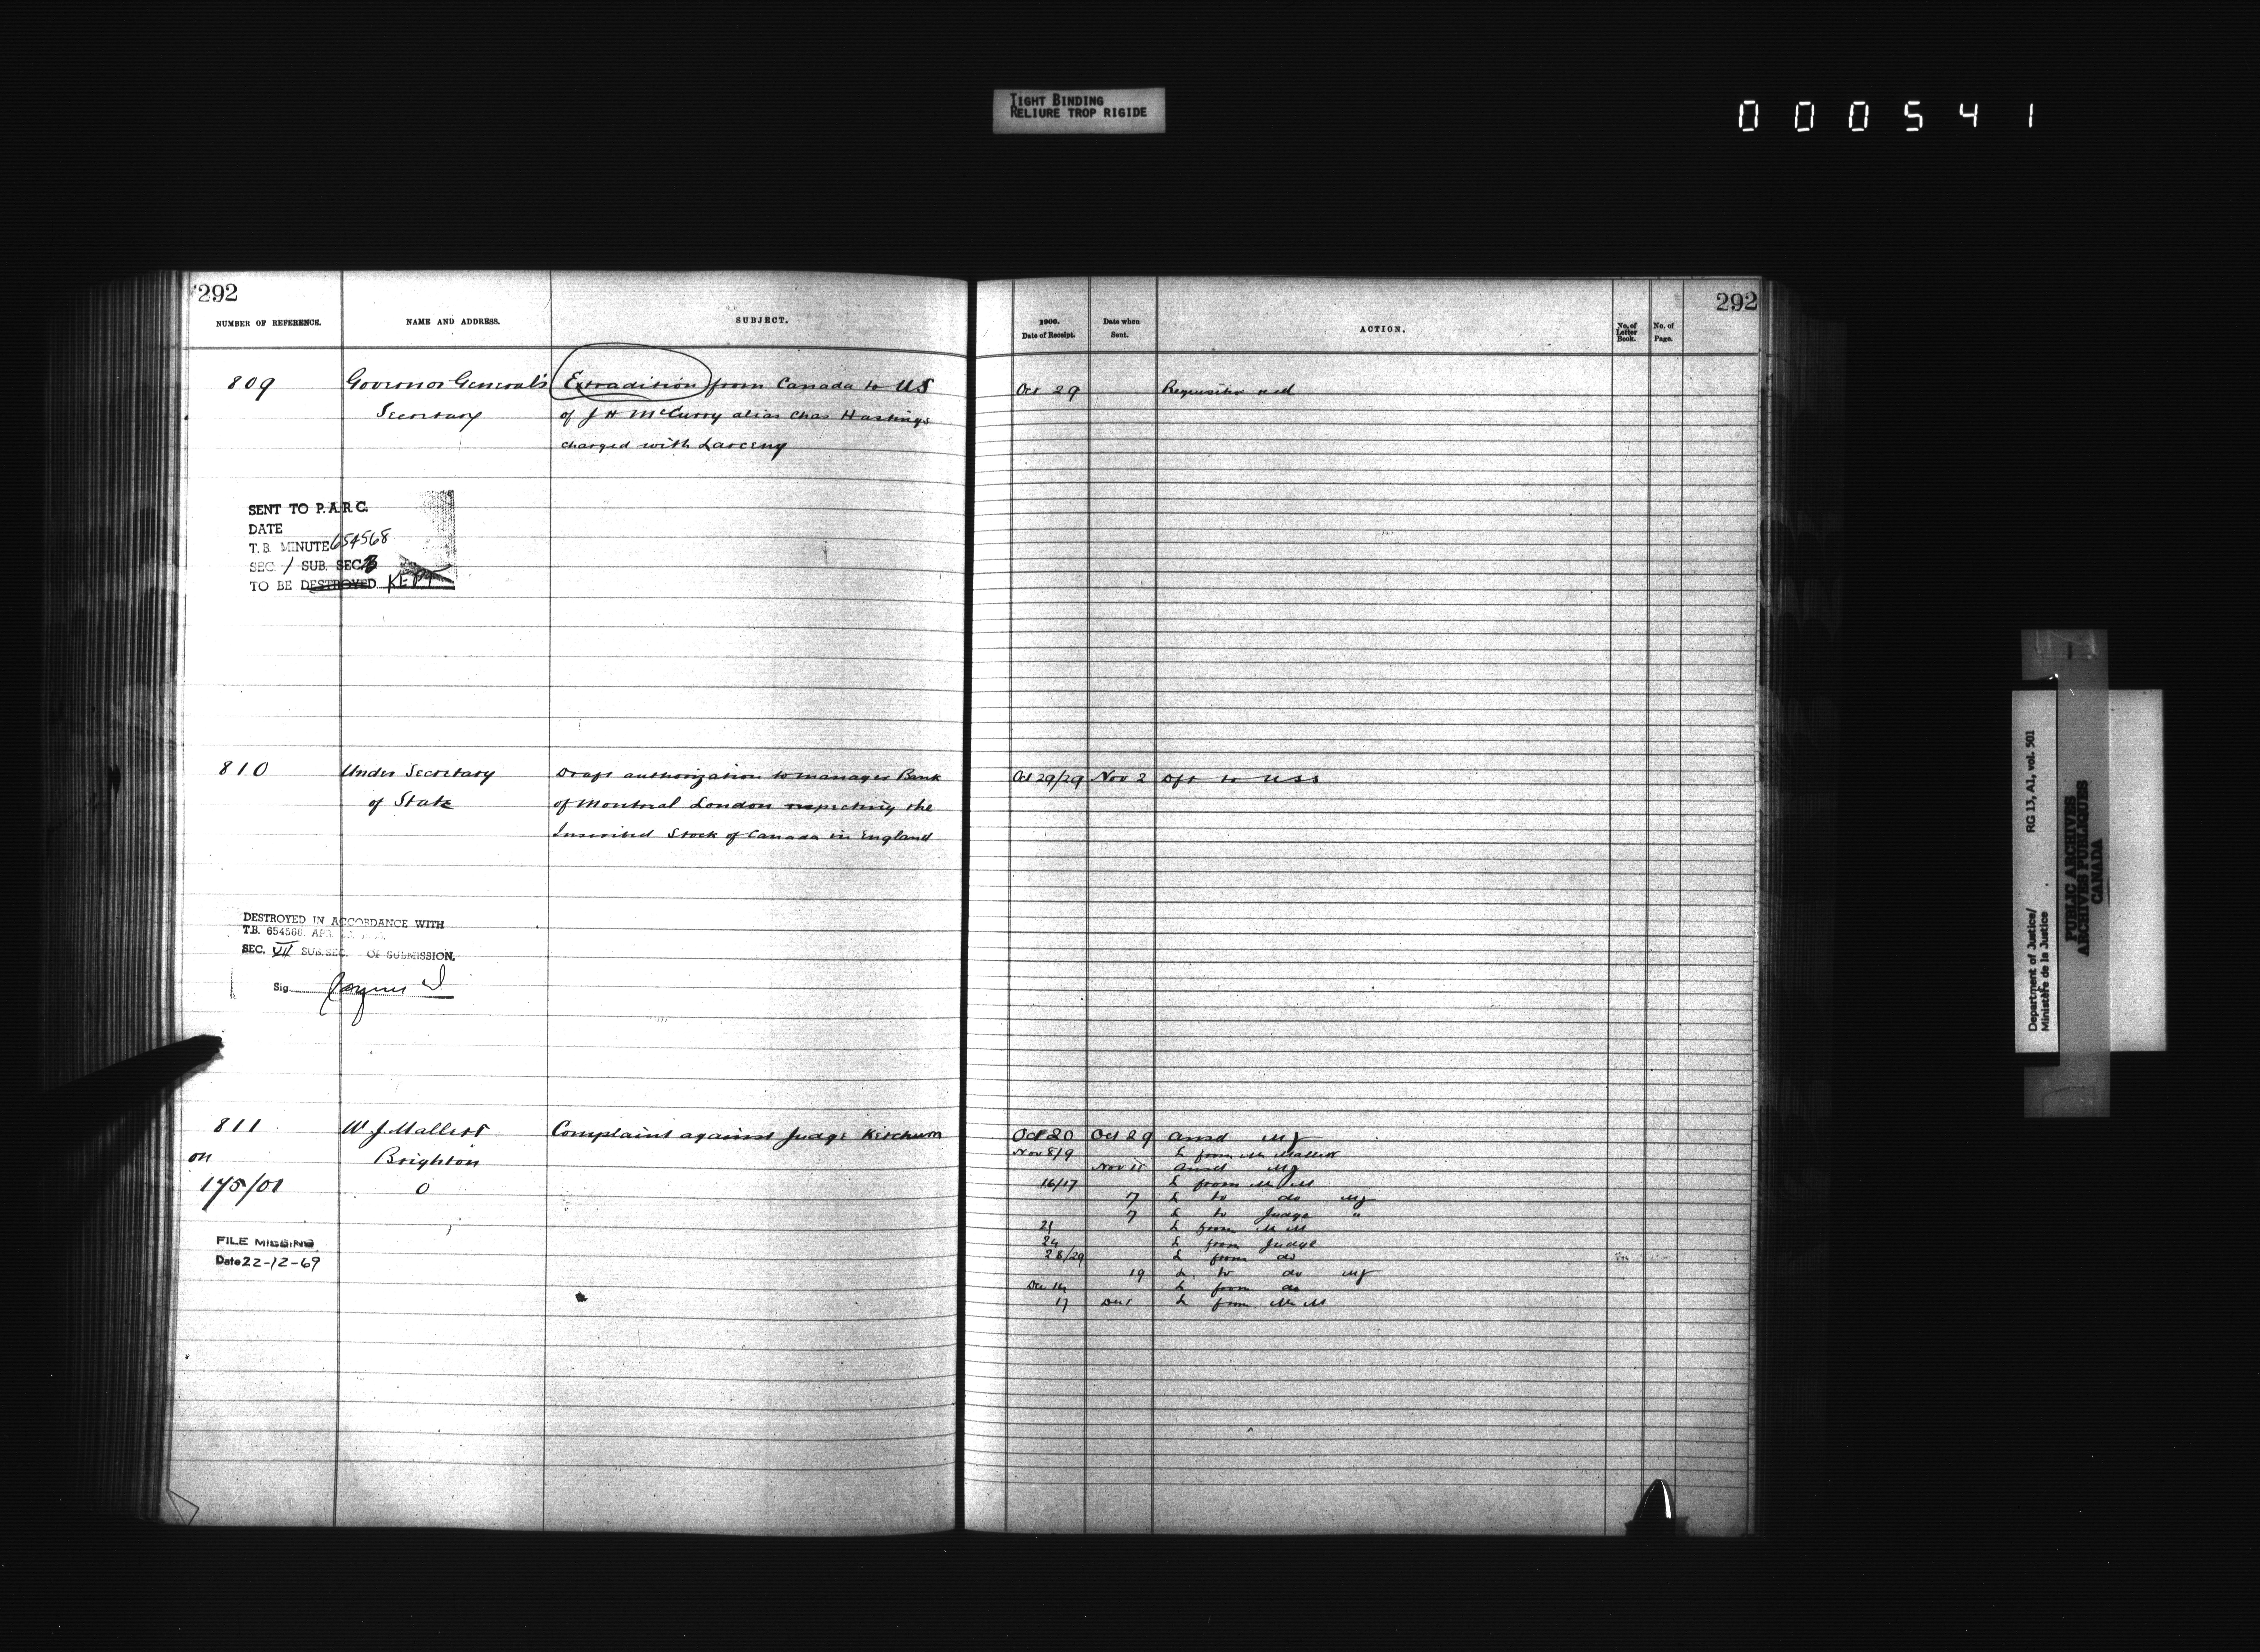 TIGHT BINDING
RELIURE TROP RIGIDE
000541
292
NUMBER OF REFERENCE.
NAME AND ADDRESS.
SUBJECT.
809
Governor General's
Secretary
Extradition from Canada to US
of J H McCurry alias Chas Hastings
charged with Larceny
SENT TO P.A.R.C.
DATE
T.B. MINUTE 654568
SEC. 1 SUB. SEC. B
TO BE DESTROYED KEPT
810
Under Secretary
of State
Draft authorization to manager Bank
of Montreal London respecting the
Inscribed Stock of Canada in England
DESTROYED IN ACCORDANCE WITH
T.B. 654568. APR.
SEC. VII SUB. SEC. OF SUBMISSION.
Sig.
811
on
175/01
W. J. Mallett
Brighton
0
Complaint against Judge Ketchum
FILE MISSING
Date 22-12-69
292
1900.
Date of Receipt.
Date when
Sent.
ACTION.
No. of
Letter
Book.
No. of
Page.
Oct 29 Requisition
Oct 29/29 Nov 2 Dft to USS
Oct 20 Oct 29 Ansd
Nov 8/9 L from Mr Mallett
Ansd
16/17 L from Mr M
7 L to do
7 L to Judge "
21 L from Mr M
24 L from Judge
28/29 L from do
19 L to do
Dec 14 L from do
17 L from Mr M
Department of Justice/
Ministère de la Justice
RG 13, A1, vol. 501
PUBLIC ARCHIVES
ARCHIVES PUBLIQUES
CANADA